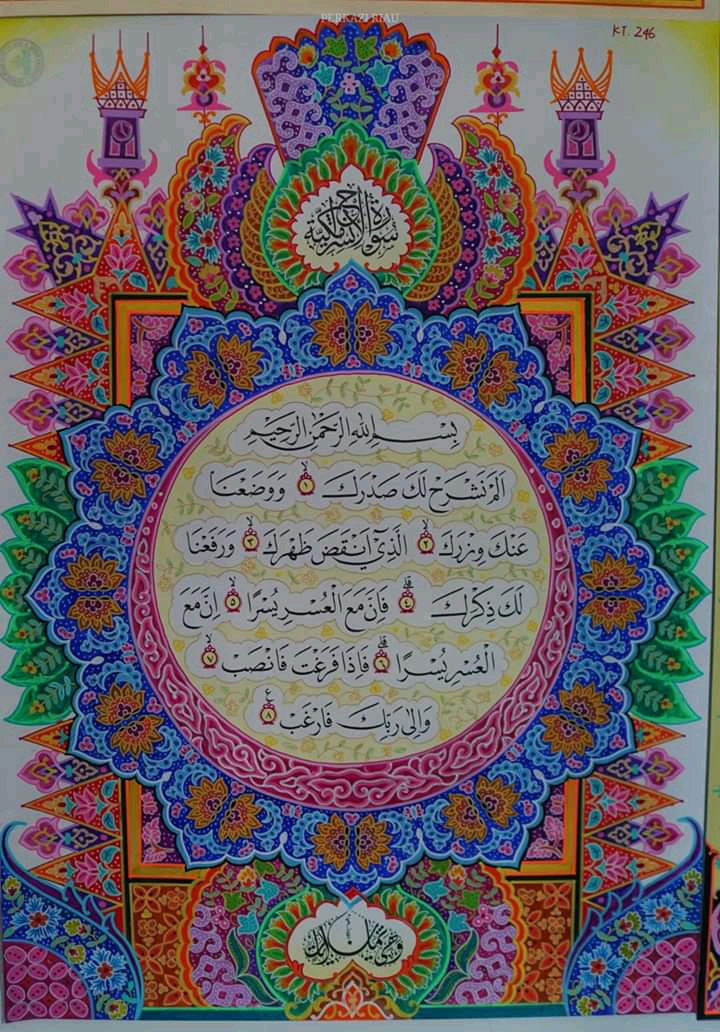 PERKAZI RIAU
KT. 246
سورة الانشراح مكية
بِسْمِ اللهِ الرَّحْمٰنِ الرَّحِيْمِ
اَلَمْ نَشْرَحْ لَكَ صَدْرَكَ ۙ ١ وَوَضَعْنَا
عَنْكَ وِزْرَكَ ۙ ٢ الَّذِيْٓ اَنْقَضَ ظَهْرَكَ ۙ ٣ وَرَفَعْنَا
لَكَ ذِكْرَكَ ۗ ٤ فَاِنَّ مَعَ الْعُسْرِ يُسْرًا ۙ ٥ اِنَّ مَعَ
الْعُسْرِ يُسْرًا ۗ ٦ فَاِذَا فَرَغْتَ فَانْصَبْ ۙ ٧
وَاِلٰى رَبِّكَ فَارْغَبْ ࣖ ٨